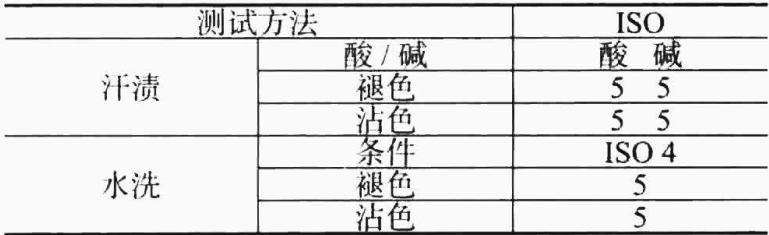 测试方法 ISO
汗渍 酸 / 碱 酸 碱
褪色 5 5
沾色 5 5
水洗 条件 ISO 4
褪色 5
沾色 5